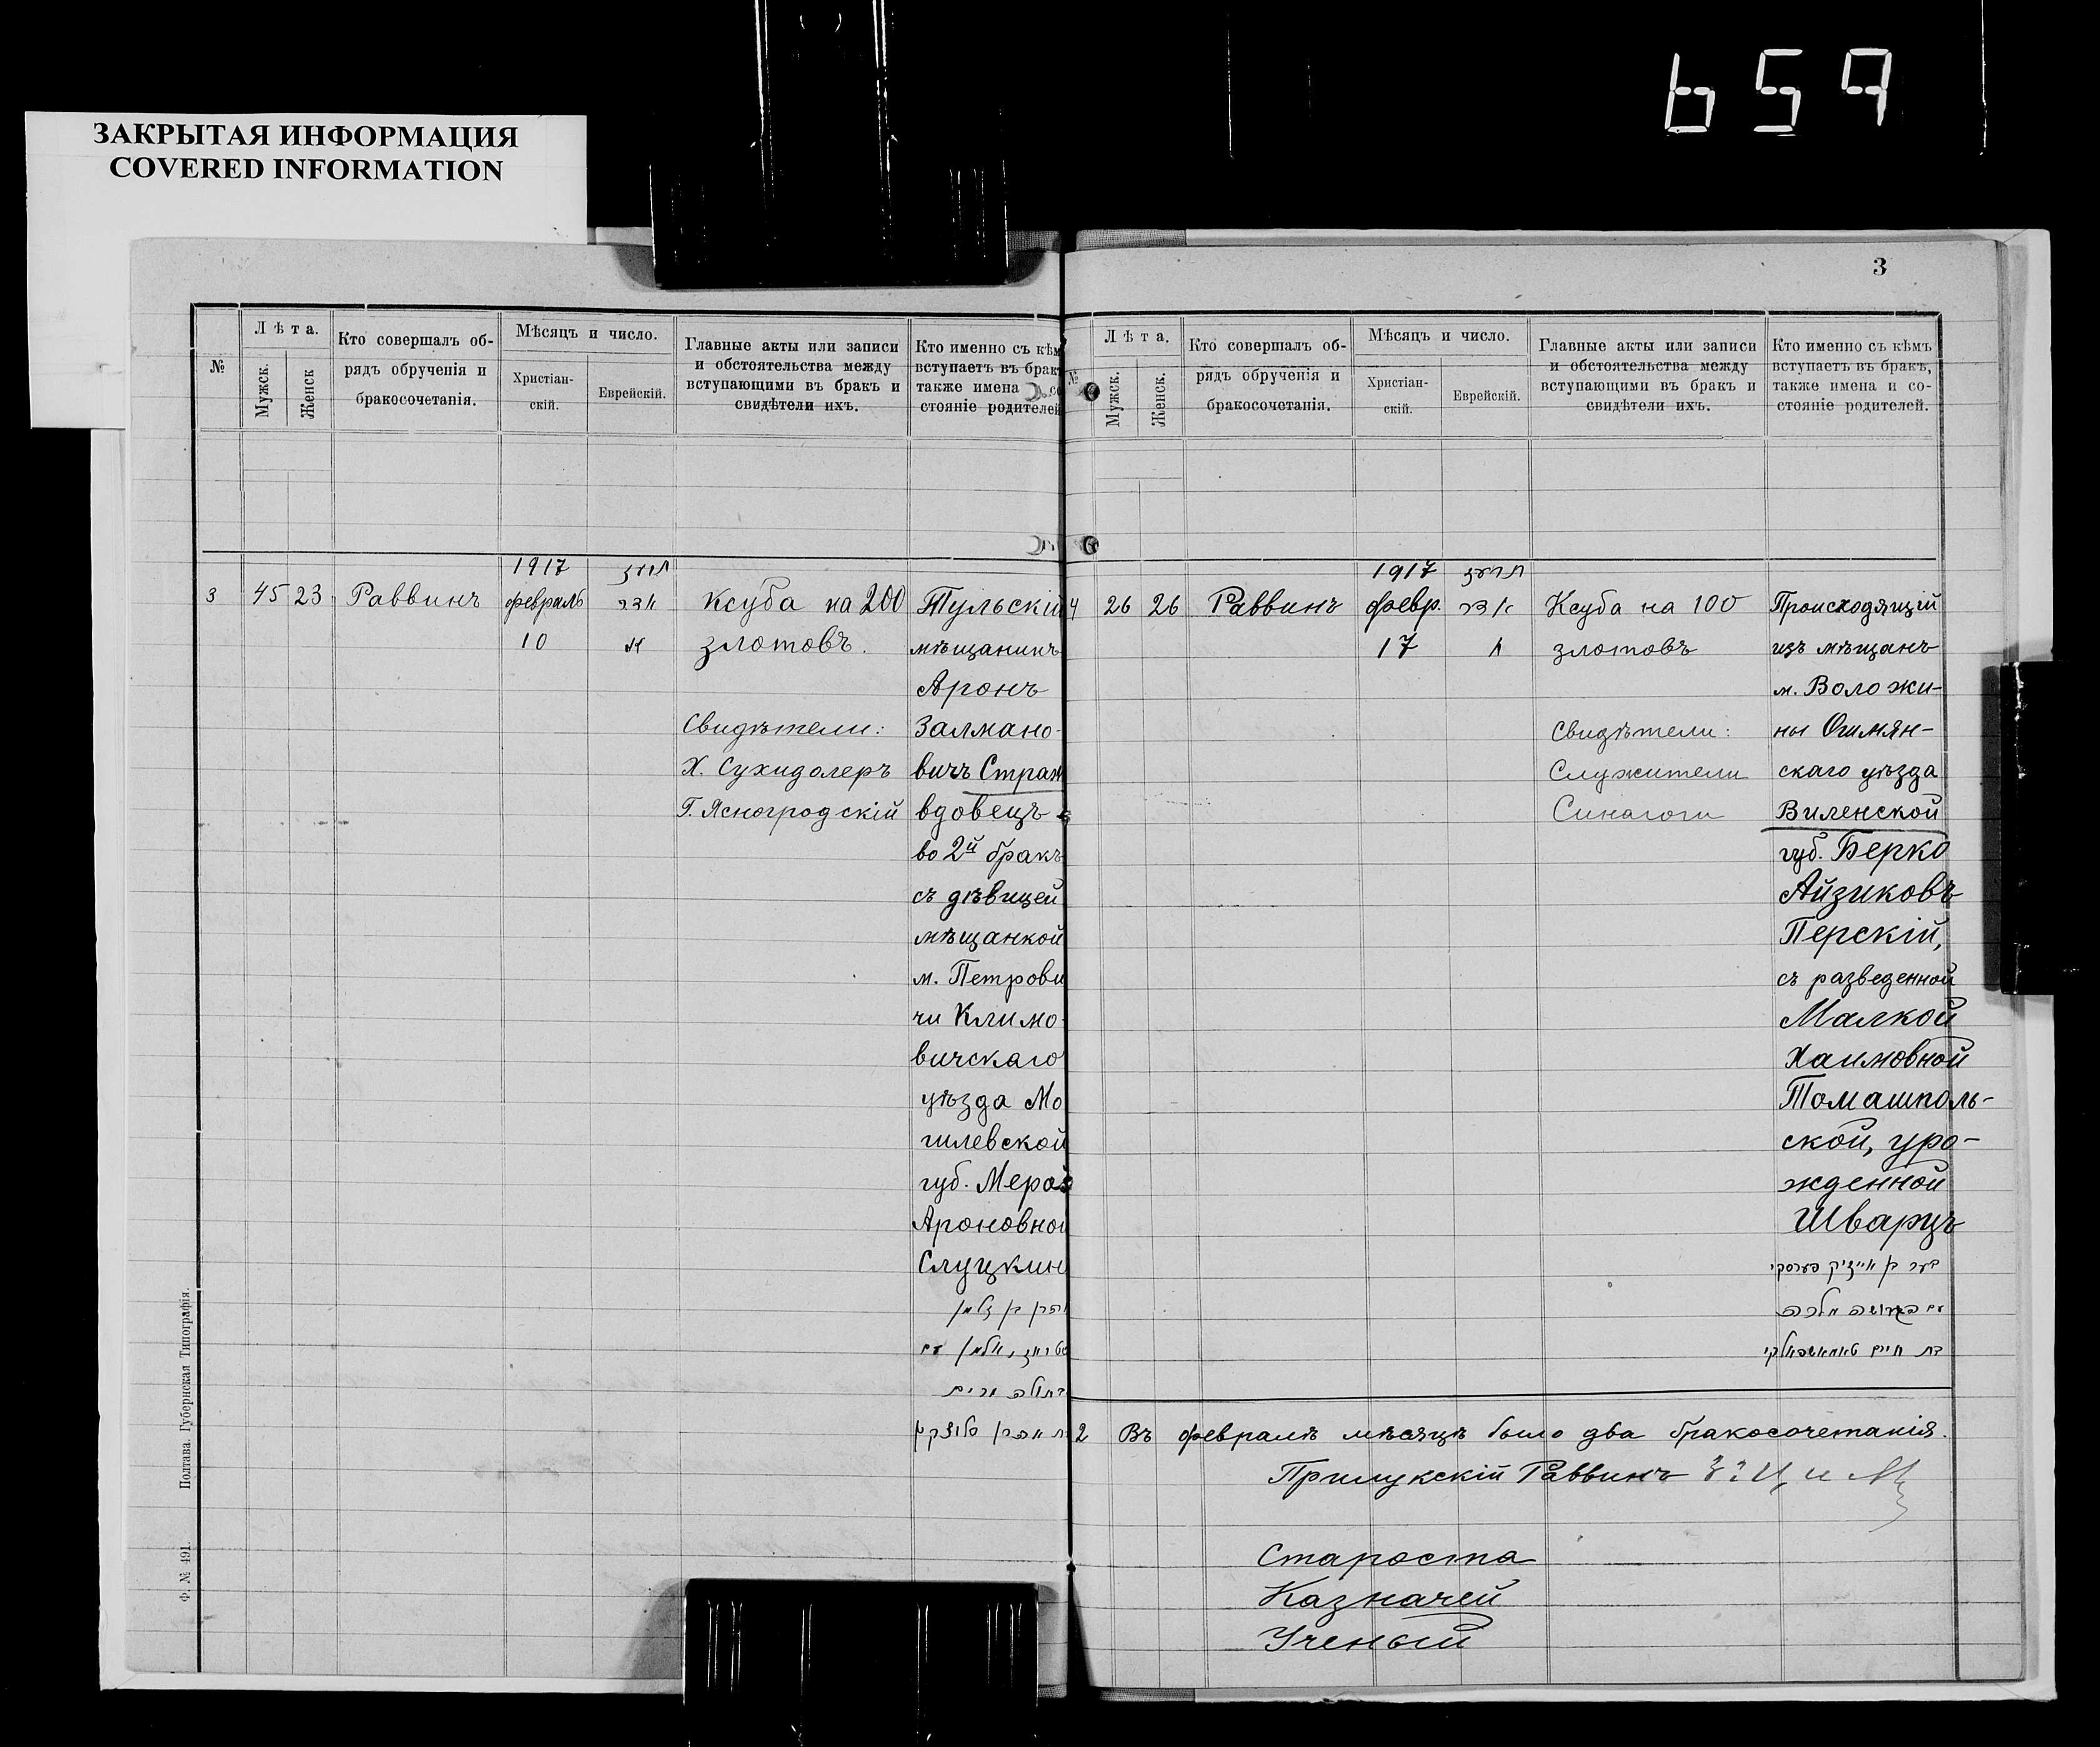 659
ЗАКРЫТАЯ ИНФОРМАЦИЯ
COVERED INFORMATION
№
Лѣта.
Мужск.
Женск
Кто совершалъ об-
рядъ обрученія и
бракосочетанія.
Мѣсяцъ и число.
Христіан-
скій.
Еврейскій.
Главные акты или записи
и обстоятельства между
вступающими въ бракъ и
свидѣтели ихъ.
Кто именно съ кѣм
вступаетъ въ брак
также имена со
стояніе родителей
3
45
23
Раввинъ
1917
февраль
10
אדר
Ксуба на 200
злотовъ.
Свидѣтели:
Х. Сухидолеръ
Г. Ясногродскій
Тульскій
мѣщанинъ
Аронъ
Залмано-
вичъ Страж
вдовецъ
во 2й бракъ
съ дѣвицей
мѣщанкой
м. Петрови
чи Климо-
вичскаго
уѣзда Мо
гилевской
губ. Мерой
Ароновной
Слуцкин
אהרן בן זלמן
אלמן עם
בתולה
בת אהרן סלוצקין
Полтава. Губернская Типографія.
Ф. № 491.
3
№
Лѣта.
Мужск.
Женск.
Кто совершалъ об-
рядъ обрученія и
бракосочетанія.
Мѣсяцъ и число.
Христіан-
скій.
Еврейскій.
Главные акты или записи
и обстоятельства между
вступающими въ бракъ и
свидѣтели ихъ.
Кто именно съ кѣмъ
вступаетъ въ бракъ,
также имена и со-
стояніе родителей.
4
26
26
Раввинъ
1917
февр.
17
אדר
Ксуба на 100
злотовъ
Свидѣтели:
Служители
Синагоги
Происходящій
изъ мѣщанъ
м. Воложи-
ны Ошмян-
скаго уѣзда
Виленской
губ. Берко
Айзиковъ
Перскій,
съ разведенной
Малкой
Хаимовной
Томашполь-
ской, уро-
жденной
Шварцъ
בער בן אייזיק פערסקי
עם הגרושה מלכה
בת חיים טאמאשפאלסקי
2 Въ февралѣ мѣсяцѣ было два бракосочетанія.
Прилукскій Раввинъ
Староста
Казначей
Ученый